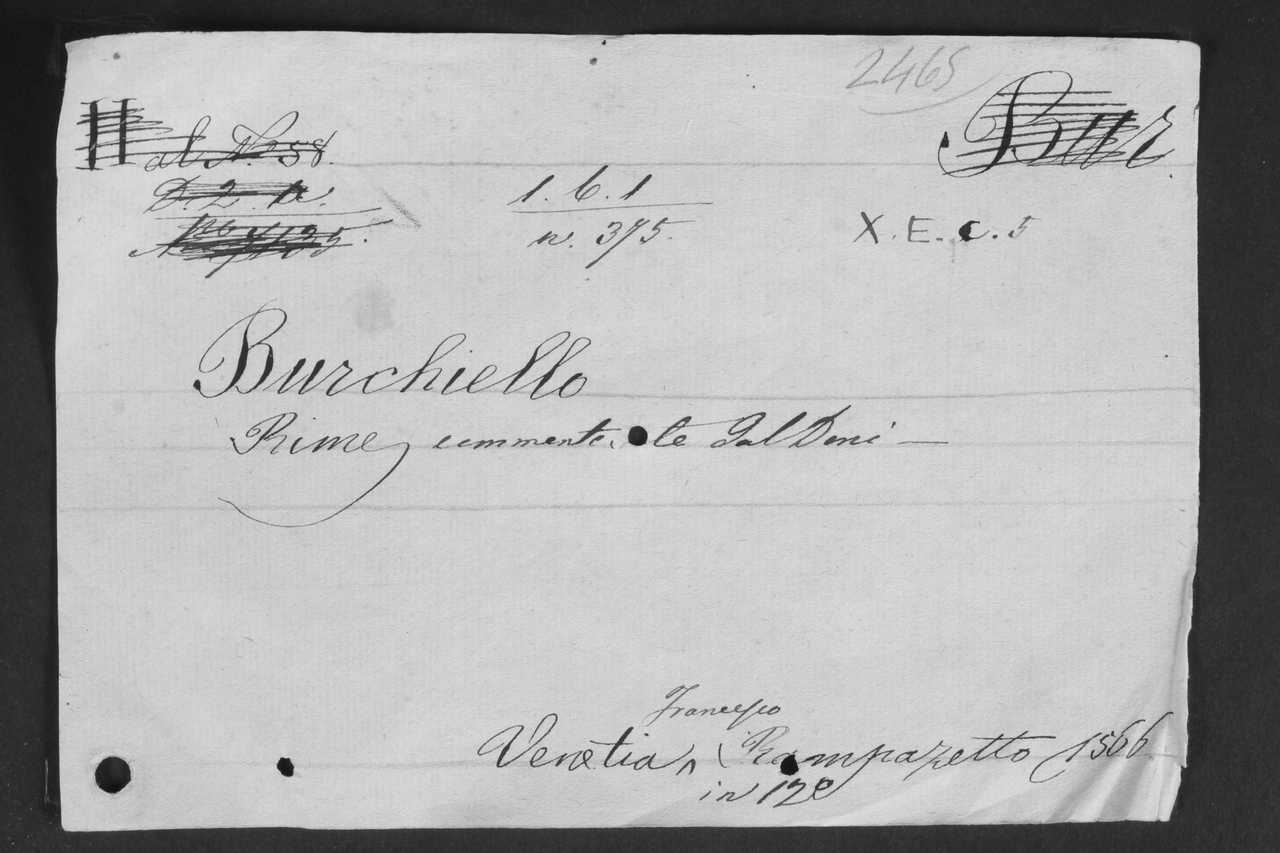 2465
Bur.
al N.º 58.
D. 2. a.
1. 6. 1
n. 375.
X. E. C. 5
Burchiello
Rime commentate dal Doni —
Francesco
Venetia, Rampazetto 1566
in 12º